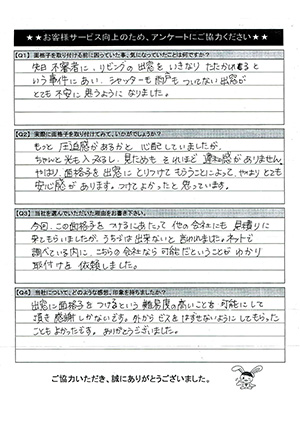 ★★お客様サービス向上のため、アンケートにご協力ください★★
【Q1】面格子を取り付ける前に困っていた事、気になっていたことは何ですか?
不審者に、リビングの出窓をいきなりたたかれると
いう事件にあい、シャッターも雨戸もついてない出窓が
とても不安に思うようになりました。
【Q2】実際に面格子を取り付けてみて、いかがでしょうか?
もっと圧迫感があるかと心配していましたが、
ちゃんと光も入るし、見ためもそれほど違和感がありません。
やはり、面格子を出窓にとりつけてもらうことによって、やはりとても
安心感があります。つけてよかったと思っています。
【Q3】当社を選んでいただいた理由をお書き下さい。
今回、この面格子をつけるにあたって他の会社にも見積りに
来てもらいましたが、うちでは出来ないと言われました。ネットで
調べている内に、こちらの会社なら可能だということがわかり
取付けを依頼しました。
【Q4】当社について、どのような感想、印象を持ちましたか?
出窓に面格子をつけるという難易度の高いことを可能にして
頂き感謝しかないです。外からビスをはずせないようにしてもらった
こともよかったです。ありがとうございました。
ご協力いただき、誠にありがとうございました。